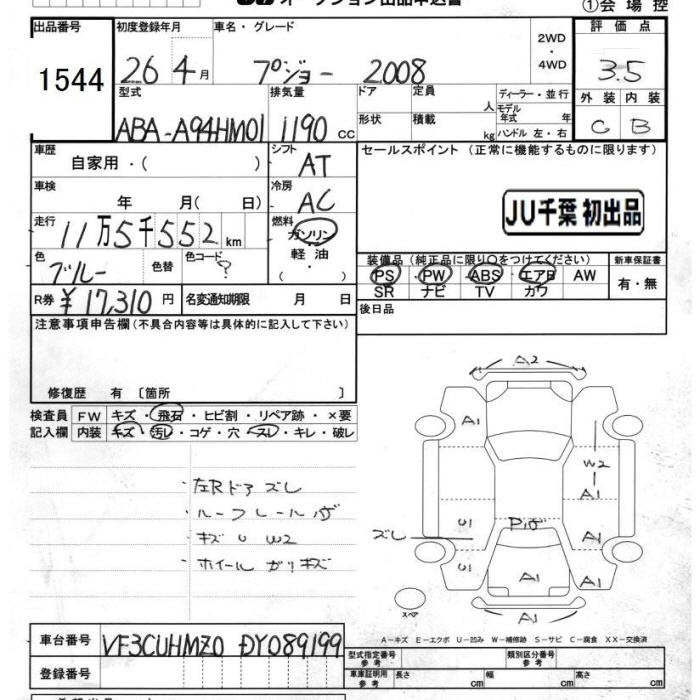 オークション出品申込書
①会場控
出品番号 初度登録年月 車名・グレード 2WD ・ 4WD 評価点
1544 26 4月 プジョー 2008 3.5
型式 排気量 ドア 定員 人 ディーラー・並行 外装 内装
ABA-A94HM01 1190 cc 形状 積載 kg モデル年式 年 ハンドル 左・右 C B
車歴 シフト セールスポイント (正常に機能するものに限ります)
自家用・( ) AT
車検 冷房
年 月( 日) AC
JU千葉 初出品
走行 燃料
11万5千552km ガソリン
色 色替 色コード 軽油
ブルー ? ( )
装備品(純正品に限り○をつけてください) 新車保証書
PS PW ABS エアB AW 有・無
SR ナビ TV カワ
R券 ¥17,310円 名変通知期限 月 日
後日品
注意事項申告欄(不具合内容等は具体的に記入して下さい)
修復歴 有 〔箇所 〕
検査員 FW キズ・飛石・ヒビ割・リペア跡・×要
記入欄 内装 キズ・汚レ・コゲ・穴・スレ・キレ・破レ
・左Rドア ズレ
・ルーフレール サビ
・キズ U W2
・ホイール ガリキズ
A2
A1
W2
A1
U1
A1
ズレ
U1
A1
A1
A1
スペア
A-キズ E-エクボ U-凹み W-補修跡 S-サビ C-腐食 XX-交換済
車台番号 VF3CUHMZ0 DY089199
型式指定番号 参考 類別区分番号 参考
登録番号
車庫証明用 参考 長さ cm 幅 cm 高さ cm